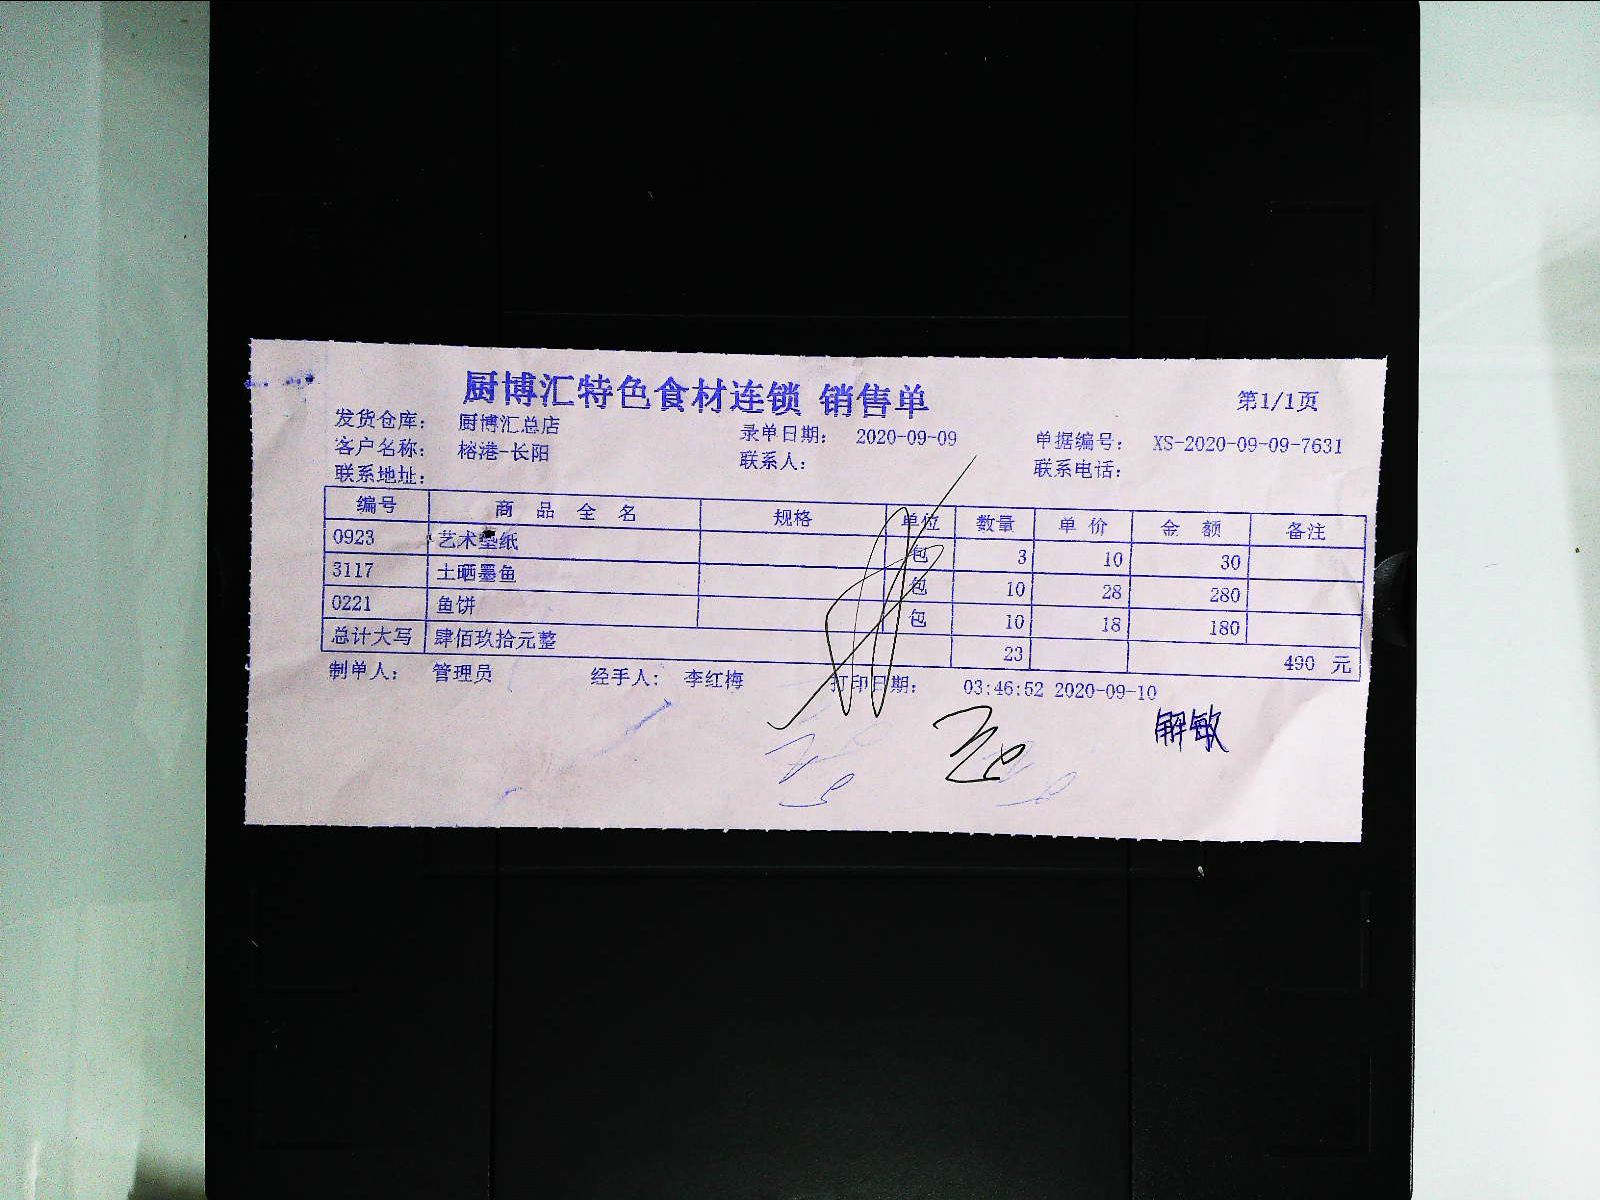 厨博汇特色食材连锁 销售单 第1/1页
发货仓库： 厨博汇总店 录单日期： 2020-09-09 单据编号： XS-2020-09-09-7631
客户名称： 榕港-长阳 联系人： 联系电话：
联系地址：
编号 商品全名 规格 单位 数量 单价 金额 备注
0923 艺术垫纸 包 3 10 30
3117 土晒墨鱼 包 10 28 280
0221 鱼饼 包 10 18 180
总计大写 肆佰玖拾元整 23 490 元
制单人： 管理员 经手人： 李红梅 打印日期： 03:46:52 2020-09-10
解敏